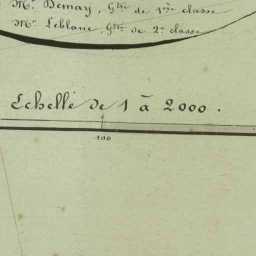 Mr. Demay, Gtre de 1ère classe
Mr. Leblanc, Gtre de 2e classe
Echelle de 1 à 2000.
100